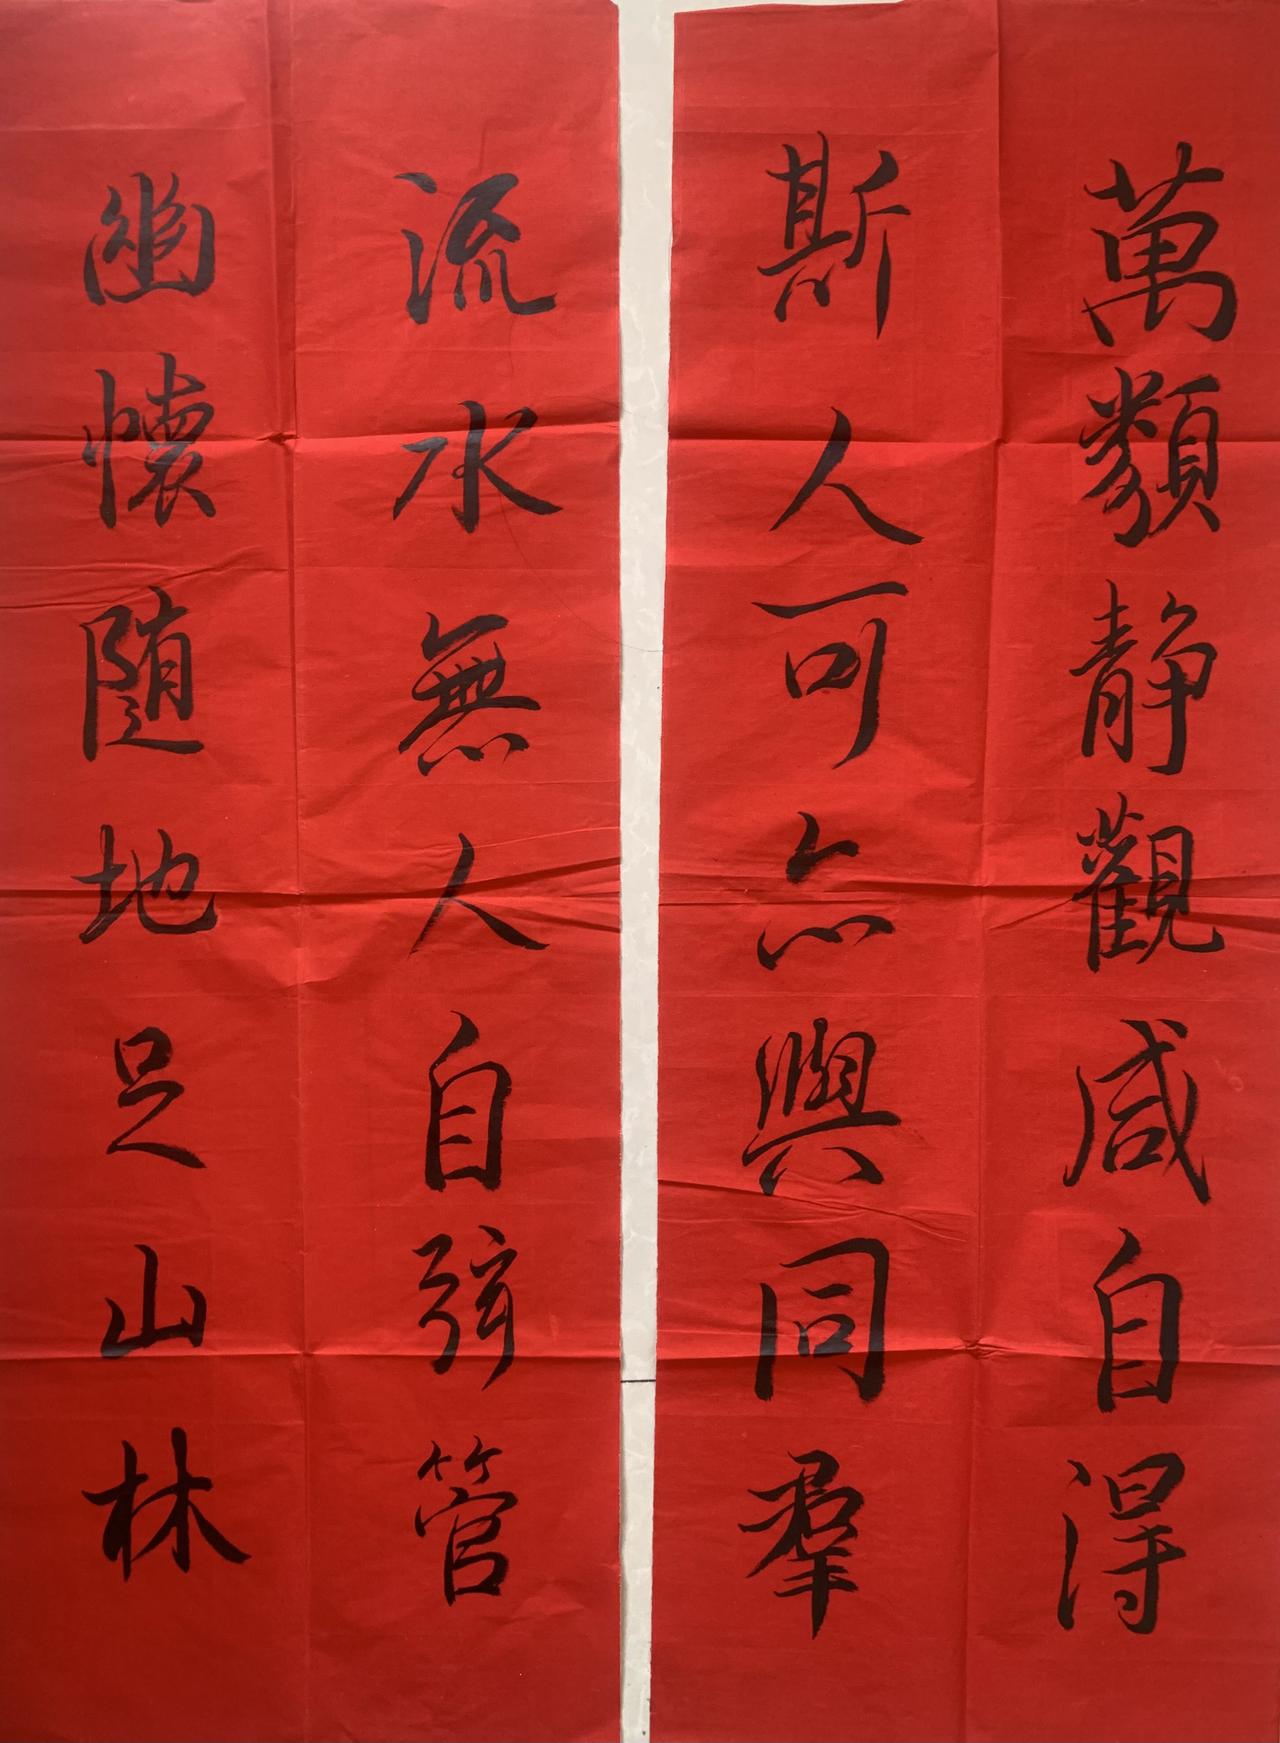 萬類静觀咸自得
斯人可亦與同羣
流水無人自弦管
幽懷随地足山林